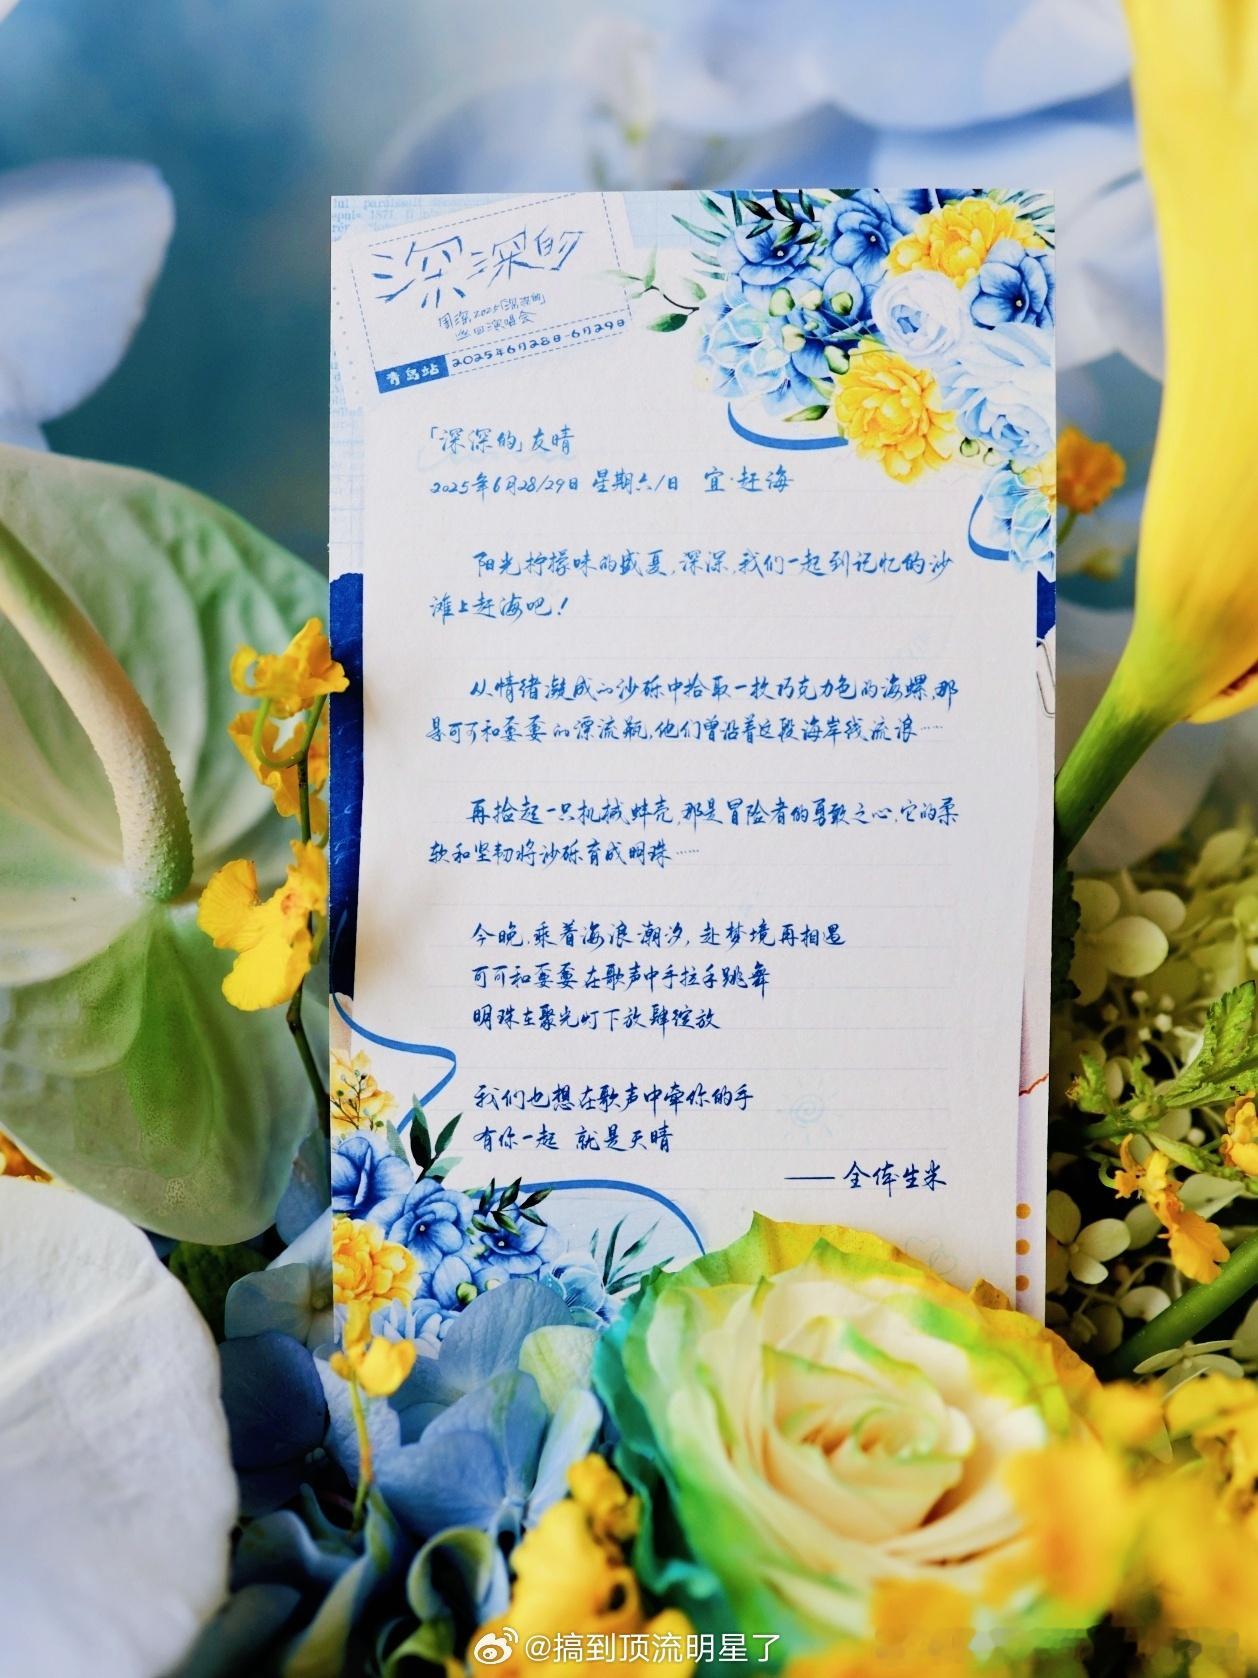 深深的
周深2025「深深的」
巡回演唱会
青岛站 2025年6月28日-6月29日
「深深的」友晴
2025年6月28/29日 星期六/日 宜·赶海
阳光柠檬味的盛夏,深深,我们一起到记忆的沙
滩上赶海吧!
从情绪凝成的沙砾中拾取一枚巧克力色的海螺,那
是可可和耍耍的漂流瓶,他们曾沿着这段海岸线流浪……
再拾起一只机械蚌壳,那是冒险者的勇敢之心,它的柔
软和坚韧将沙砾育成明珠……
今晚,乘着海浪潮汐,赴梦境再相遇
可可和耍耍在歌声中手拉手跳舞
明珠在聚光灯下放肆绽放
我们也想在歌声中牵你的手
有你一起 就是天晴
——全体生米
@搞到顶流明星了